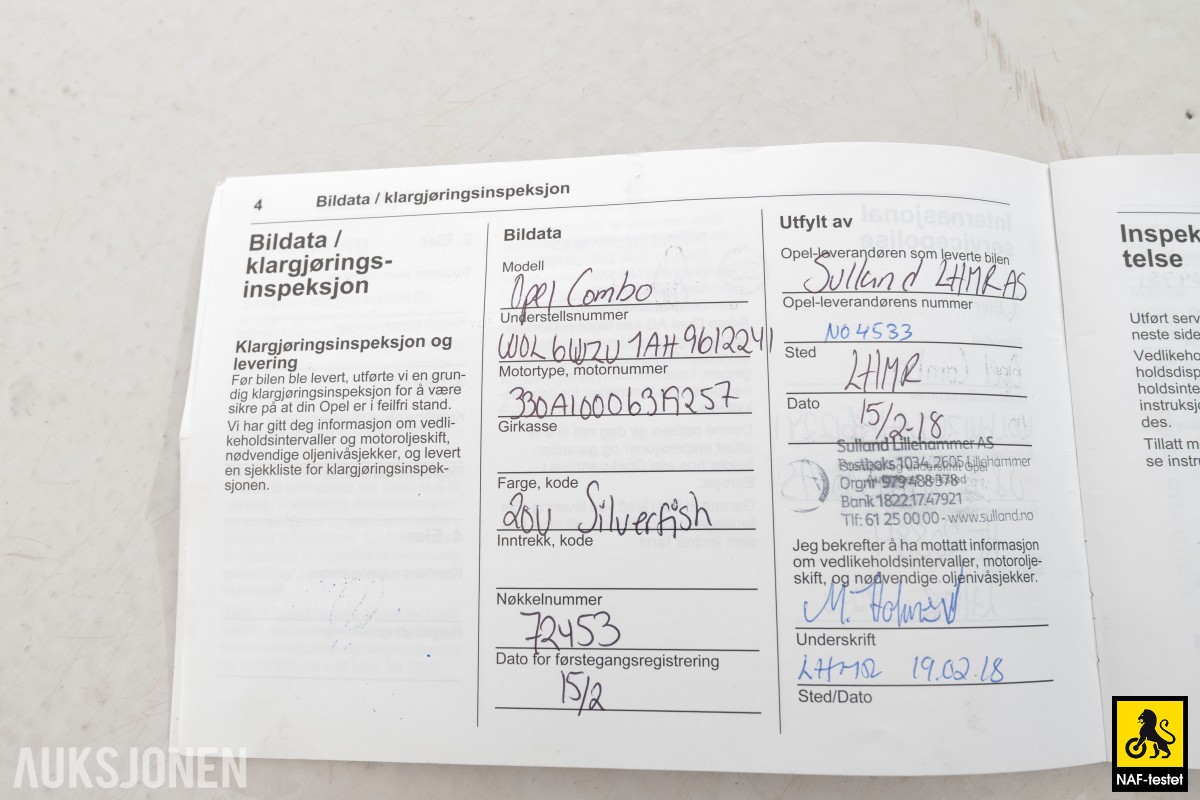 4 Bildata / klargjøringsinspeksjon
Bildata /
klargjørings-
inspeksjon
Klargjøringsinspeksjon og
levering
Før bilen ble levert, utførte vi en grun-
dig klargjøringsinspeksjon for å være
sikre på at din Opel er i feilfri stand.
Vi har gitt deg informasjon om vedli-
keholdsintervaller og motoroljeskift,
nødvendige oljenivåsjekker, og levert
en sjekkliste for klargjøringsinspek-
sjonen.
Bildata
Modell
Opel Combo
Understellsnummer
W0L6WZU1AH9612241
Motortype, motornummer
330A10006
Girkasse
Farge, kode
20U Silverfish
Inntrekk, kode
Nøkkelnummer
72453
Dato for førstegangsregistrering
15/2
Utfylt av
Opel-leverandøren som leverte bilen
Sulland LHMR AS
Opel-leverandørens nummer
NO4533
Sted
LHMR
Dato
15/2-18
Sulland Lillehammer AS
Postboks 1034, 2605 Lillehammer
Orgnr 979 488 378
Bank 1822.17.47921
Tlf: 61 25 00 00 - www.sulland.no
Jeg bekrefter å ha mottatt informasjon
om vedlikeholdsintervaller, motorolje-
skift, og nødvendige oljenivåsjekker.
M.
Underskrift
LHMR 19.02.18
Sted/Dato
Inspek
telse
Utført serv
neste side
Vedlikeho
holdsdisp
holdsinte
instruksjo
des.
Tillatt m
se instru
AUKSJONEN
NAF-testet